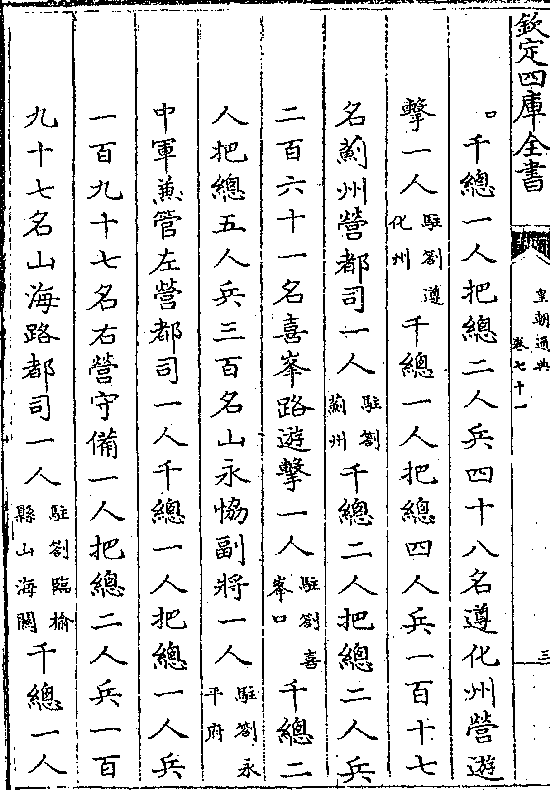 欽定四庫全書
皇朝通典
卷七十一
三
口千總一人把總二人兵四十八名遵化州營遊
擊一人駐劄遵化州千總一人把總四人兵一百十七
名薊州營都司一人駐劄薊州千總二人把總二人兵
二百六十一名喜峯路遊擊一人駐劄喜峯口千總二
人把總五人兵三百名山永協副將一人駐劄永平府
中軍兼管左營都司一人千總一人把總一人兵
一百九十七名右營守備一人把總二人兵一百
九十七名山海路都司一人駐劄臨榆縣山海關千總一人